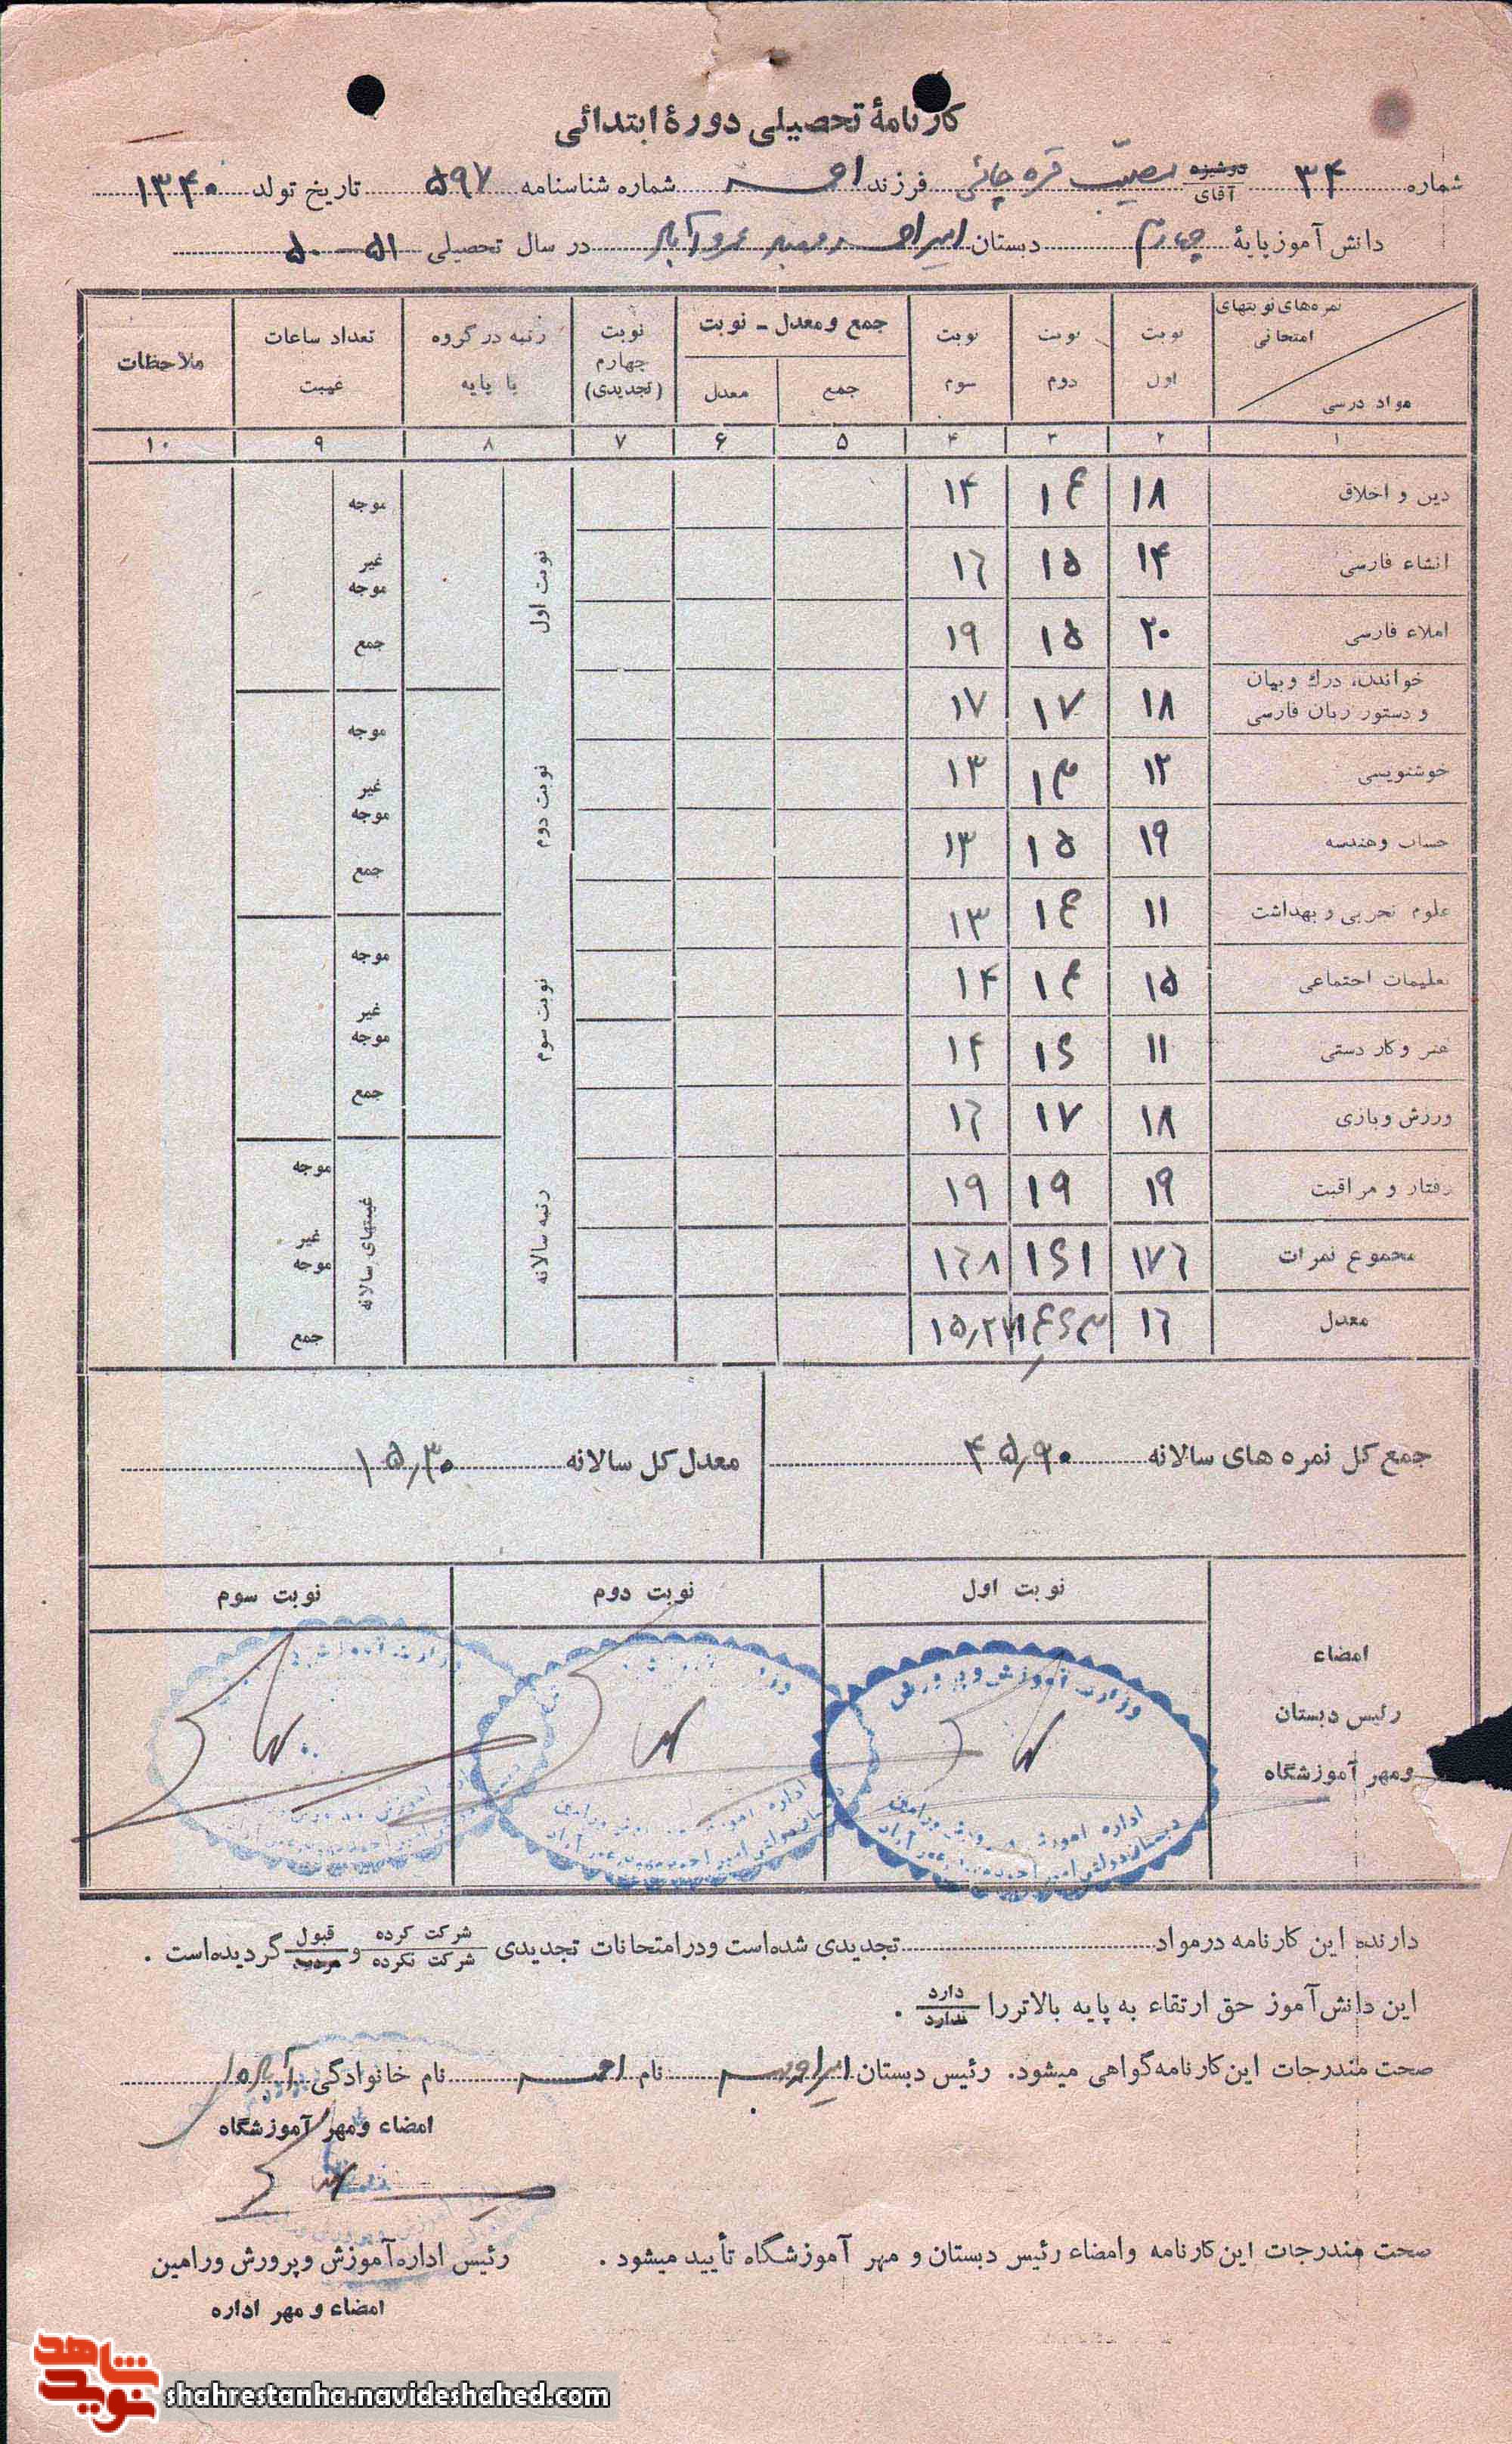 کارنامهٔ تحصیلی دورهٔ ابتدائی
شماره ۳۴ دوشیزه آقای مصیب قره چائی فرزند احمد شماره شناسنامه ۵۹۷ تاریخ تولد ۱۳۴۰
دانش آموز پایهٔ چهارم دبستان امیر احمد در سال تحصیلی ۵۱ - ۵۰
نمره‌های نوبتهای امتحانی
مواد درسی
نوبت اول
نوبت دوم
نوبت سوم
جمع و معدل - نوبت
جمع
معدل
نوبت چهارم (تجدیدی)
رتبه در گروه یا پایه
تعداد ساعات غیبت
ملاحظات
۱ ۲ ۳ ۴ ۵ ۶ ۷ ۸ ۹ ۱۰
دین و اخلاق ۱۸ ۱۴ ۱۴
انشاء فارسی ۱۴ ۱۵ ۱۶
املاء فارسی ۲۰ ۱۵ ۱۹
خواندن، درك و بیان و دستور زبان فارسی ۱۸ ۱۷ ۱۷
خوشنویسی ۱۲ ۱۳ ۱۳
حساب و هندسه ۱۹ ۱۵ ۱۳
علوم تجربی و بهداشت ۱۱ ۱۴ ۱۳
تعلیمات اجتماعی ۱۵ ۱۴ ۱۴
هنر و کار دستی ۱۱ ۱۶ ۱۴
ورزش و بازی ۱۸ ۱۷ ۱۶
رفتار و مراقبت ۱۹ ۱۹ ۱۹
مجموع نمرات ۱۷۶ ۱۶۱ ۱۶۸
معدل ۱۶ ۱۴٫۶۳ ۱۵٫۲۷
نوبت اول
نوبت دوم
نوبت سوم
رتبه سالانه
موجه
غیر موجه
جمع
موجه
غیر موجه
جمع
موجه
غیر موجه
جمع
غیبتهای سالانه
موجه
غیر موجه
جمع
جمع کل نمره های سالانه ۴۵٫۹۰ معدل کل سالانه ۱۵٫۳۰
امضاء
رئیس دبستان
ومهر آموزشگاه
نوبت اول
نوبت دوم
نوبت سوم
وزارت آموزش و پرورش
اداره آموزش و پرورش ورامین
دبستان دولتی امیر احمد
دارنده این کارنامه درمواد تجدیدی شده‌است ودرامتحانات تجدیدی شرکت کرده شرکت نکرده و قبول مردود گردیده‌است .
این دانش‌آموز حق ارتقاء به پایه بالاتررا دارد ندارد .
صحت مندرجات این‌کارنامه‌گواهی میشود. رئیس دبستان نام احمد نام خانوادگی
امضاء ومهر آموزشگاه
صحت مندرجات این‌کارنامه وامضاء رئیس دبستان و مهر آموزشگاه تأیید میشود .
رئیس اداره‌آموزش وپرورش ورامین
امضاء و مهر اداره
نوید شاهد
shahrestanha.navideshahed.com